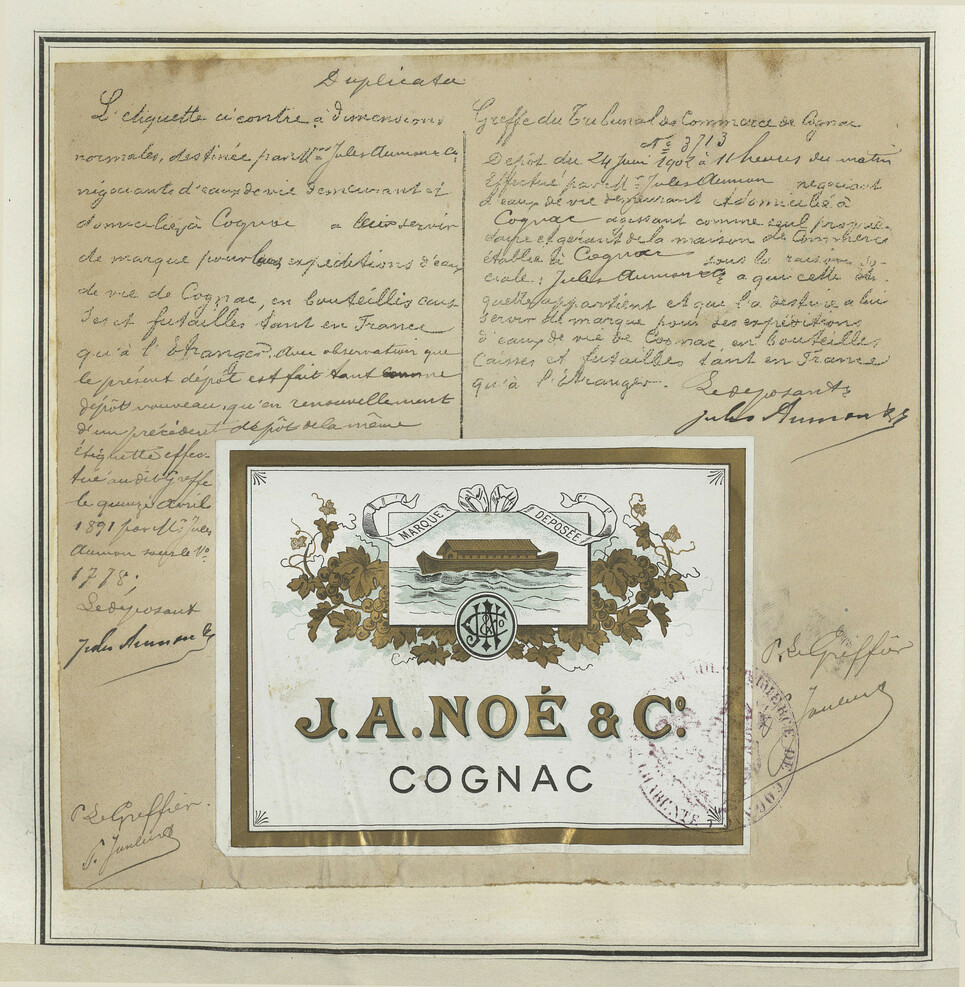 Duplicata
L'étiquette ci contre, à dimensions
normales, destinée par Mrs Jules Aumon & Co
négociants d'eaux de vie demeurant et
domiciliés à Cognac à leur servir
de marque pour leurs expéditions d'eaux
de vie de Cognac, en bouteilles, cais-
ses et futailles, tant en France
qu'à l'Étranger, avec observation que
le présent dépôt est fait tant comme
dépôt nouveau, qu'en renouvellement
d'un précédent dépôt de la même
étiquette effec-
tué au dit Greffe
le quinze avril
1891 par Mr Jules
Aumon sous le No
1778;
Le déposant
Jules Aumon & Co
P. Le Greffier
Greffe du Tribunal de Commerce de Cognac
No 3713
Dépôt du 24 Juin 1902 à 11 heures du matin
Effectué par Mr Jules Aumon négociant
d'eaux de vie demeurant et domicilié à
Cognac agissant comme seul proprié-
taire et gérant de la maison de Commerce
établie à Cognac sous la raison so-
ciale: Jules Aumon & Co a qui cette éti-
quette appartient et que l'a destinée à lui
servir de marque pour ses expéditions
d'eaux de vie de Cognac, en bouteilles,
caisses et futailles tant en France
qu'à l'étranger.
Le déposant
Jules Aumon & Co
P. Le Greffier
MARQUE DÉPOSÉE
J.A.NOÉ & Co.
COGNAC
COMMERCE DE COGNAC
CHARENTE